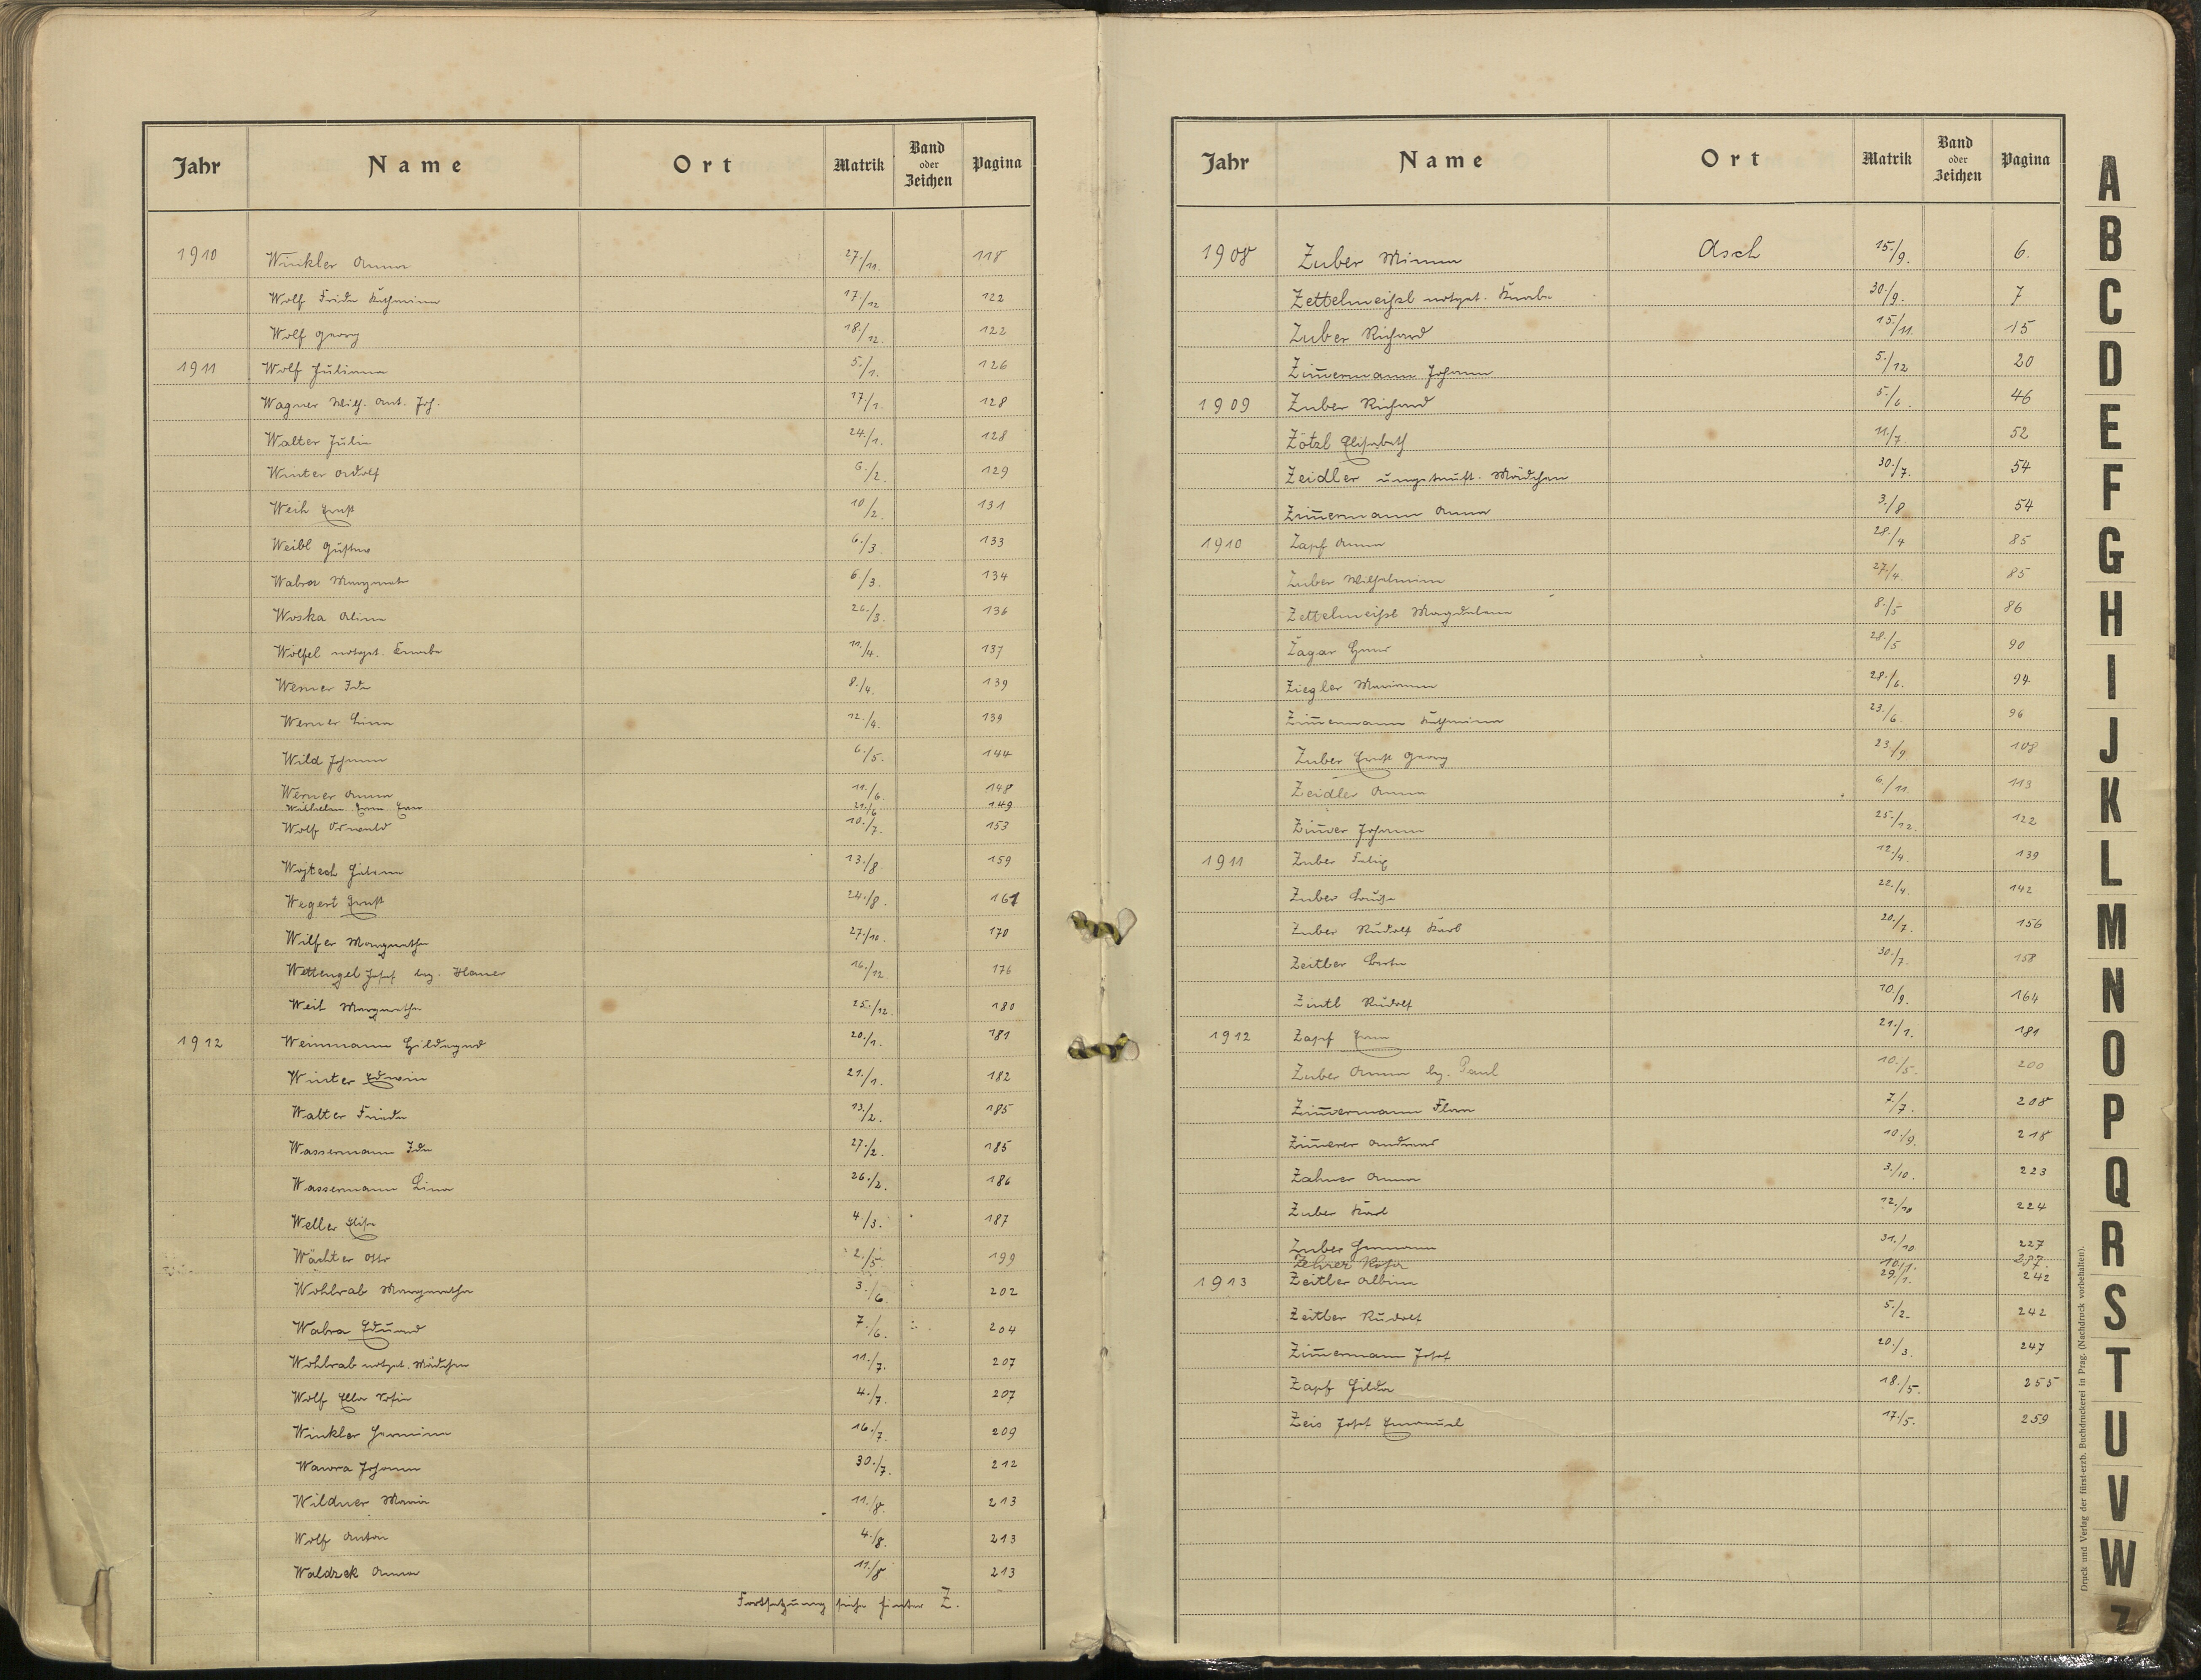 Jahr Name Ort Matrik Band oder Zeichen Pagina
1910 Winkler Anna 27./11. 118
Wolf Frida Katharina 17./12 122
Wolf Georg 18./12. 122
1911 Wolf Juliana 5./1. 126
Wagner Wilh. Ant. Joh. 17./1. 128
Walter Julie 24./1. 128
Winter Adolf 6./2. 129
Weih Ernst 10/2. 131
Weibl Gustav 6./3. 133
Wabra Margareta 6./3. 134
Woska Alina 26./3. 136
Wölfel notget. Knabe 11./4. 137
Werner Ida 8./4. 139
Werner Lina 12./4. 139
Wild Johann 6./5. 144
Werner Anna 11./6. 148
Wilhelm Erna 21./6. 149
Wolf Oswald 10./7. 153
Wojtech Helena 13./8. 159
Wegert Ernst 24./8. 161
Wilfer Margaretha 27./10. 170
Wettengel Josef bzg. Hamer 16./12. 176
Weil Margaretha 25./12. 180
1912 Weinmann Hildegard 20./1. 181
Winter Edwin 21./1. 182
Walter Frieda 13./2. 185
Wassermann Ida 27./2. 185
Wassermann Lina 26./2. 186
Weller Elise 4./3. 187
Wächter Otto 2./5. 199
Wohlrab Margaretha 3./6. 202
Wabra Eduard 7./6. 204
Wohlrab notget. Mädchen 11./7. 207
Wolf Ella Sofie 4./7. 207
Winkler Hermine 16./7. 209
Wawra Johann 30./7. 212
Wildner Maria 11./8. 213
Wolf Anton 4./8. 213
Waldzek Anna 11./8 213
Fortsetzung siehe hinter Z.
Jahr Name Ort Matrik Band oder Zeichen Pagina
1908 Zuber Minna Asch 15./9. 6.
Zettelmeißl notget. Knabe 30./9. 7
Zuber Richard 15./11. 15
Zim̄ermann Johann 5./12 20
1909 Zuber Richard 5./6. 46
Zötzl Elisabeth 11./7. 52
Zeidler ungetauft. Mädchen 30./7. 54
Zim̄ermann Anna 3./8 54
1910 Zapf Anna 28./4 85
Zuber Wilhelmine 27./4. 85
Zettelmeißl Magdalena 8./5 86
Zagar Hans 28./5 90
Ziegler Marianna 28./6. 94
Zim̄ermann Katharina 23./6. 96
Zuber Ernst Georg 23./9 108
Zeidler Anna 6./11. 113
Zim̄er Johann 25./12. 122
1911 Zuber Felix 12./4. 139
Zuber Louise 22./4. 142
Zuber Rudolf Karl 20./7. 156
Zeitler Berta 30./7. 158
Zintl Rudolf 10./9. 164
1912 Zapf Erna 21./1. 181
Zuber Anna bzg. Paul 10./5. 200
Zim̄ermann Flora 7./7. 208
Zim̄erer Andreas 10./9. 218
Zahner Anna 3./10. 223
Zuber Karl 12./10 224
Zuber Hermann 31./10 227
Zehrer Rosa 10./1. 237.
1913 Zeitler Albine 29./1. 242
Zeitler Rudolf 5./2. 242
Zim̄ermann Josef 20./3. 247
Zapf Hilda 18./5. 255
Zeis Josef Emanuel 17./5. 259
Druck und Verlag der fürst-erzb. Buchdruckerei in Prag. (Nachdruck vorbehalten).
A
B
C
D
E
F
G
H
I
J
K
L
M
N
O
P
Q
R
S
T
U
V
W
Z